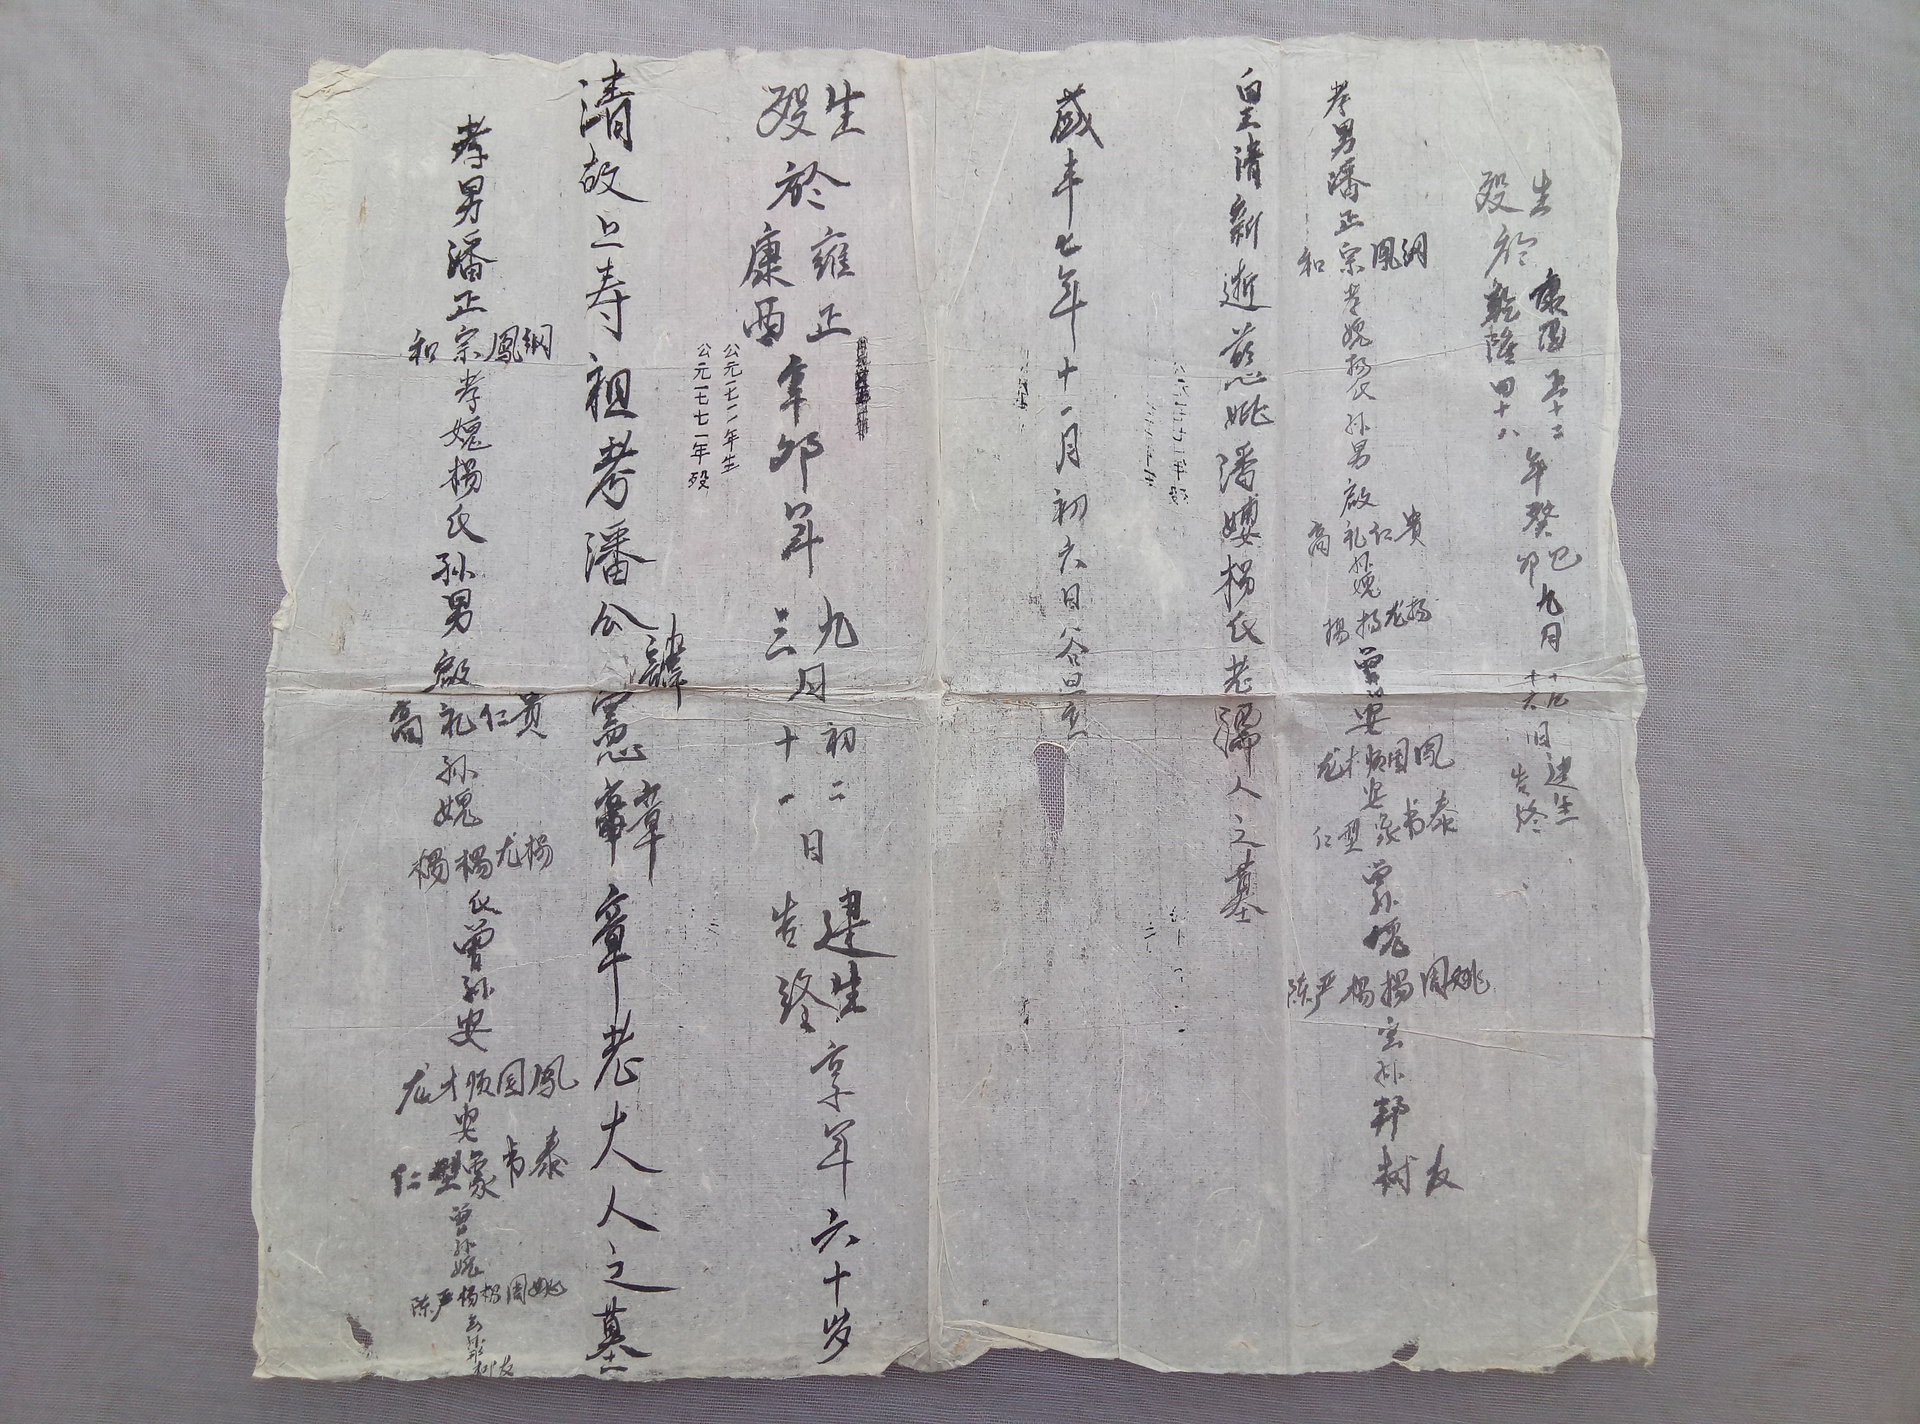 生 康酉五十二年癸巳九月十九日建生
殁於乾隆四十八 卯 十六 告终
孝男潘正 綱鳳宗和 孝媳杨氏孙男啟 贵仁礼高 孙媳 杨龙杨楊 曾孙安 凤国顺才龙 安 泰书象型仁 曾孙媳 姚周揚楊严陈 玄孙邦 友树
皇清新逝慈妣潘婆楊氏老孺人之墓
咸丰七年十一月初六日谷旦立
生 雍正 九 初二 建生享年六十岁
殁於康酉辛卯年三月十一日告終
公元一七一二年生
公元一七七一年殁
清故上寿祖考潘公諱憲章章老大人之墓
孝男潘正 綱鳳宗和 孝媳楊氏孙男啟 贵仁礼高 孙媳 楊尤楊楊 氏曾孙安 鳳国顺才龙 安 泰书象型仁 曾孙媳 姚周楊楊严陈 友